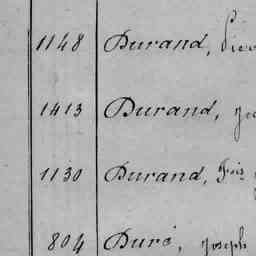 1148 Durand,
1413 Durand,
1130 Durand, Frois
804 Duré, Joseph